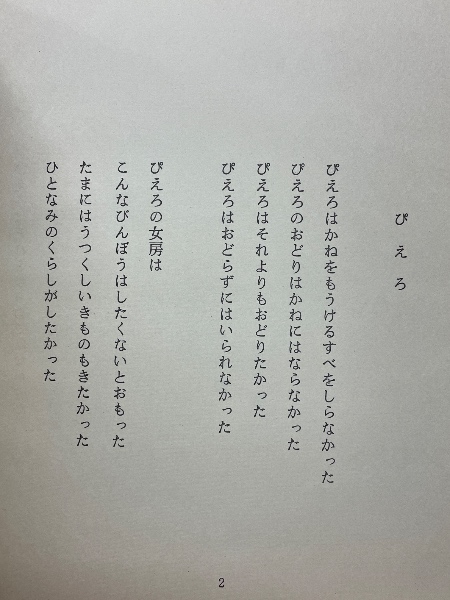 ぴえろ
ぴえろはかねをもうけるすべをしらなかった
ぴえろのおどりはかねにはならなかった
ぴえろはそれよりもおどりたかった
ぴえろはおどらずにはいられなかった
ぴえろの女房は
こんなびんぼうはしたくないとおもった
たまにはうつくしいきものもきたかった
ひとなみのくらしがしたかった
2